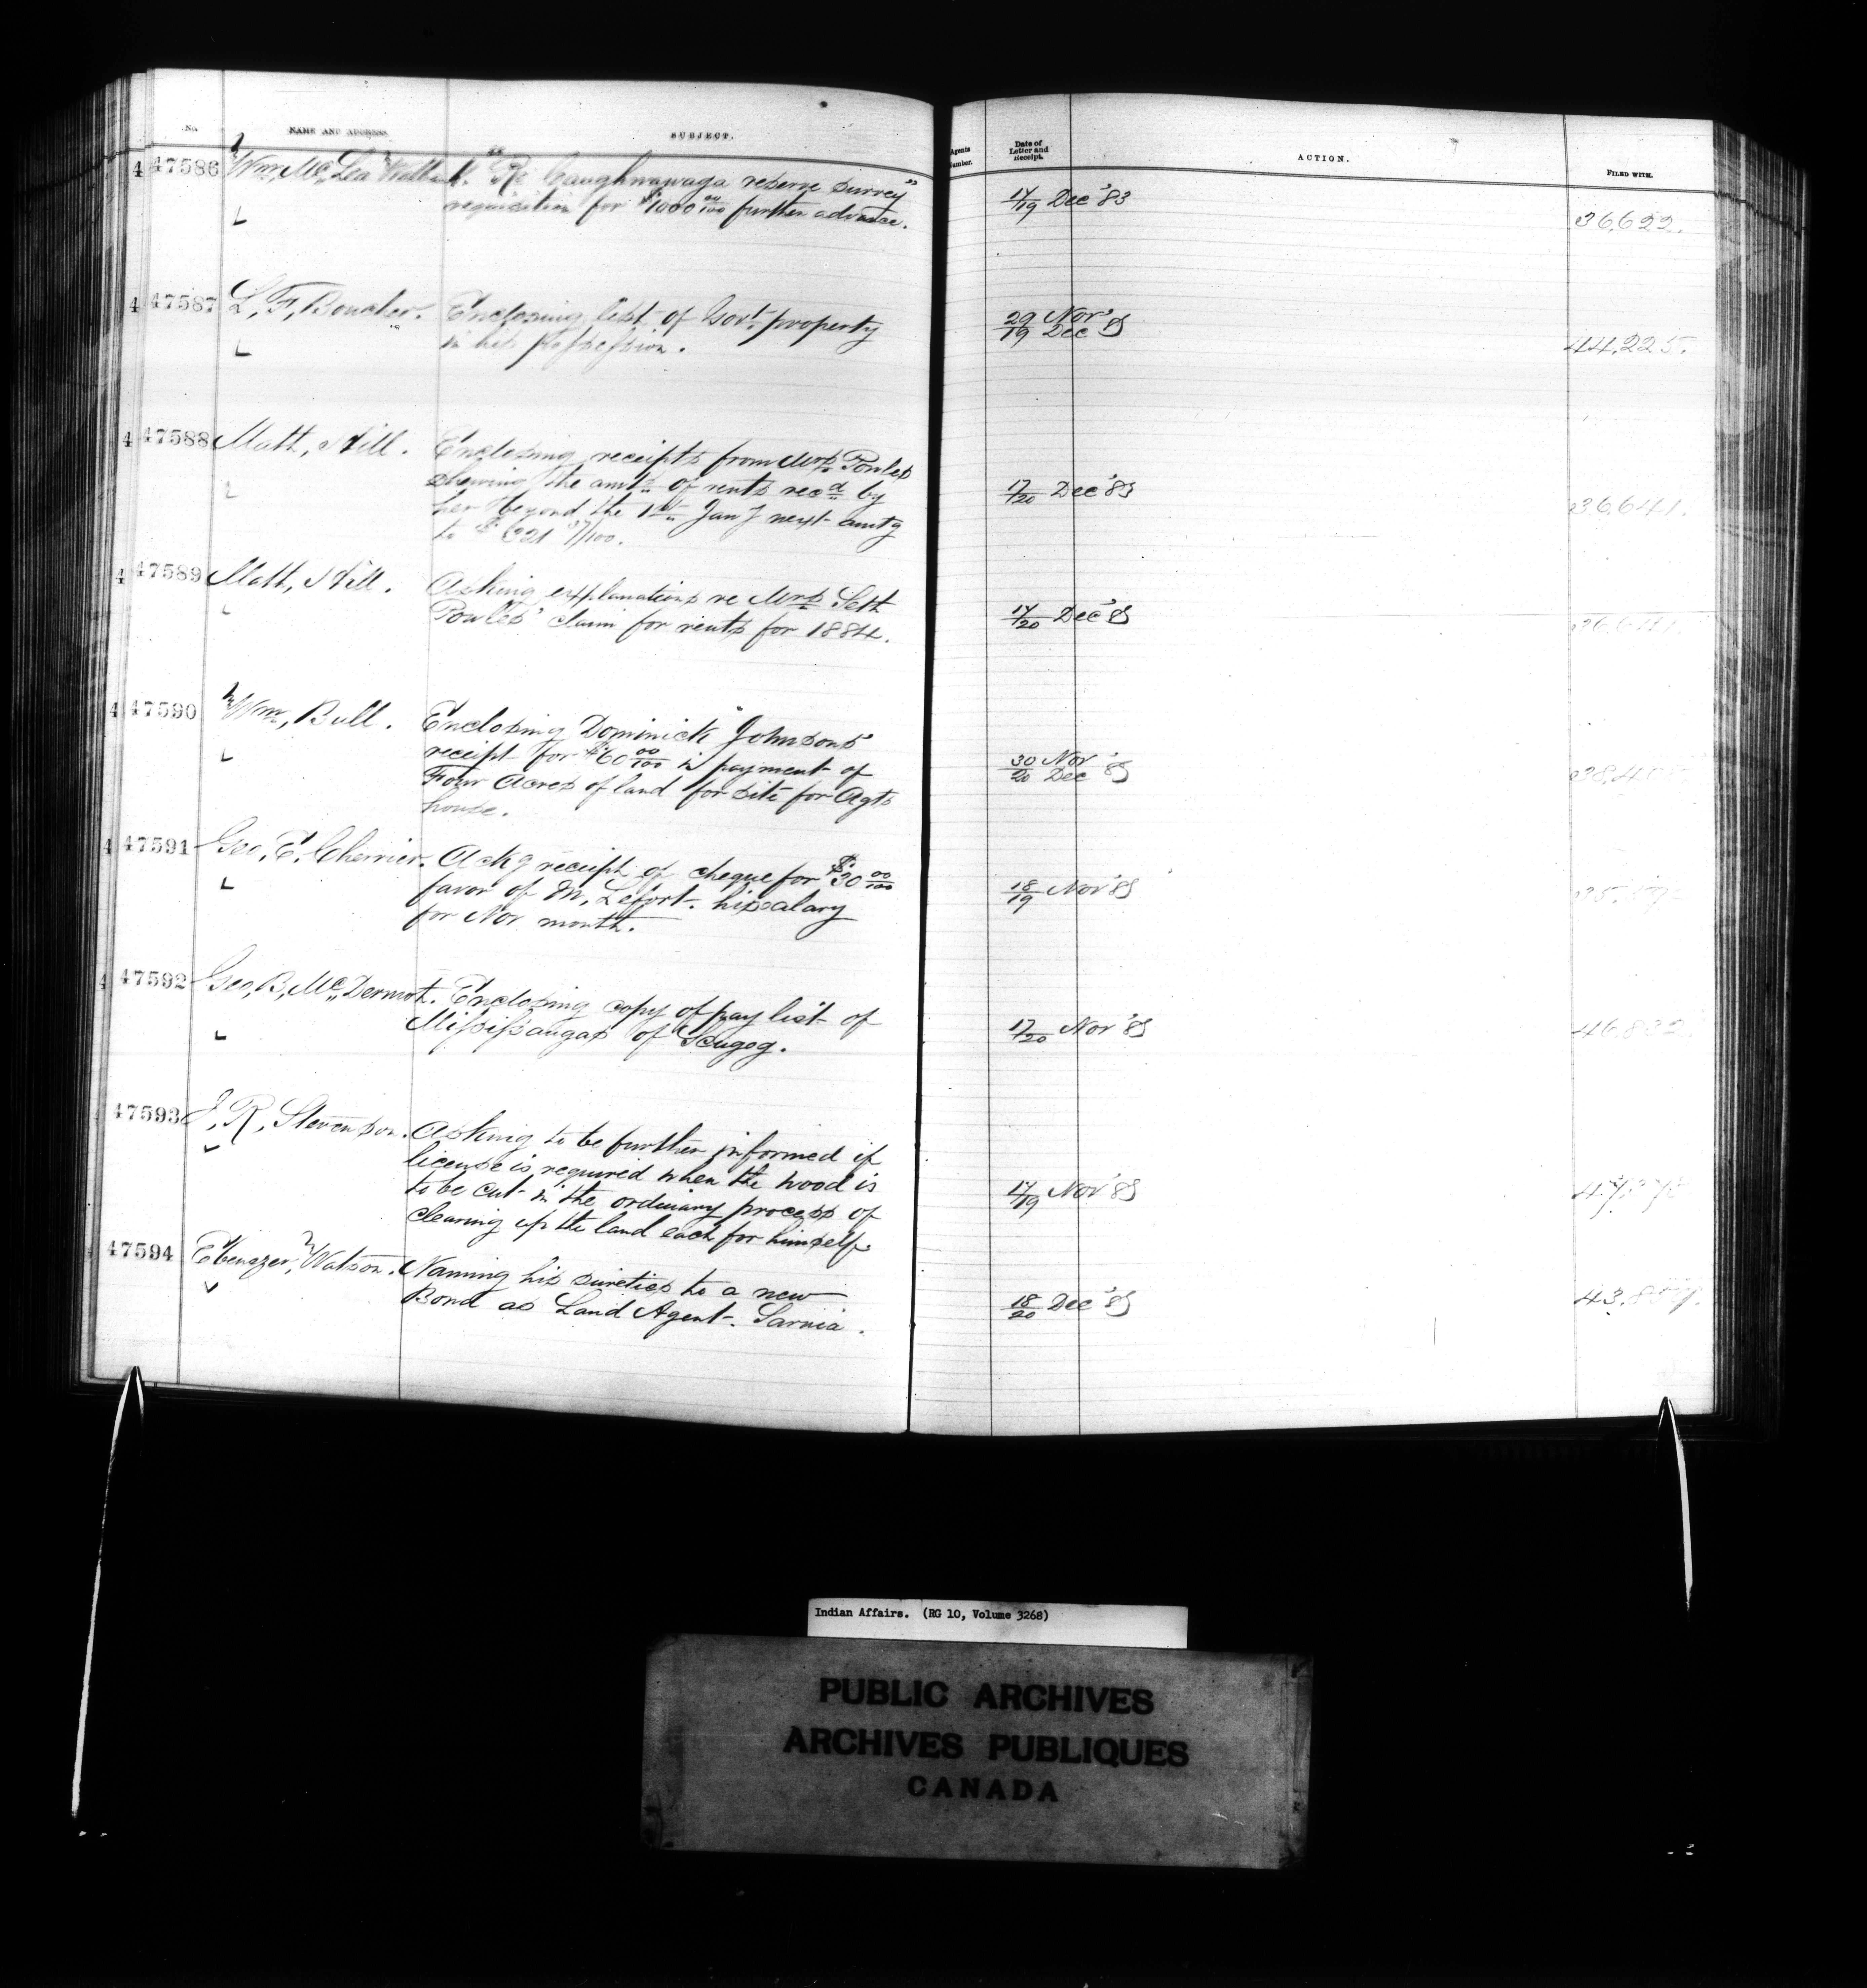 No. NAME AND ADDRESS. SUBJECT. Agents Number. Date of Letter and Receipt. ACTION. FILED WITH.
47586 Wm, Mc Lea Walbank. "Re Caughnawaga reserve survey"
requisition for $1000 00/100 further advance.
17/19 Dec '83
36,622.
47587 L, F, Boucher. Enclosing list of Govt. property
in his possession.
29 Nov'
19 Dec '83
44,225.
47588 Matt, Hill. Enclosing receipts from Mrs Powles
shewing the amts of rents recd by
her beyond the 1st Jany next amtg
to $
17/20 Dec '83
36,641.
47589 Matt, Hill. Asking explanations re Mrs Seth
Powles' claim for rents for 1884.
17/20 Dec '83
47590 Wm, Bull. Enclosing Dominick Johnsons'
receipt for $60 00/100 in payment of
Four Acres of land for site for Agts
house.
30 Nov
20 Dec '83
47591 Geo, E, Cherrier. Ackg receipt of cheque for $30 00/100
favor of M, Lefort. his salary
for Nov month.
18/19 Nov '83
47592 Geo, B, Mc Dermot. Enclosing copy of pay list of
Missisaugas of Scugog.
17/20 Nov '83
47593 J, R, Stevenson. Asking to be further informed if
license is required when the wood is
to be cut in the ordinary process of
clearing up the land each for himself.
17/19 Nov '83
47594 Ebenezer, Watson. Naming his sureties to a new
Bond as Land Agent. Sarnia.
18/20 Dec '83
Indian Affairs. (RG 10, Volume 3268)
PUBLIC ARCHIVES
ARCHIVES PUBLIQUES
CANADA